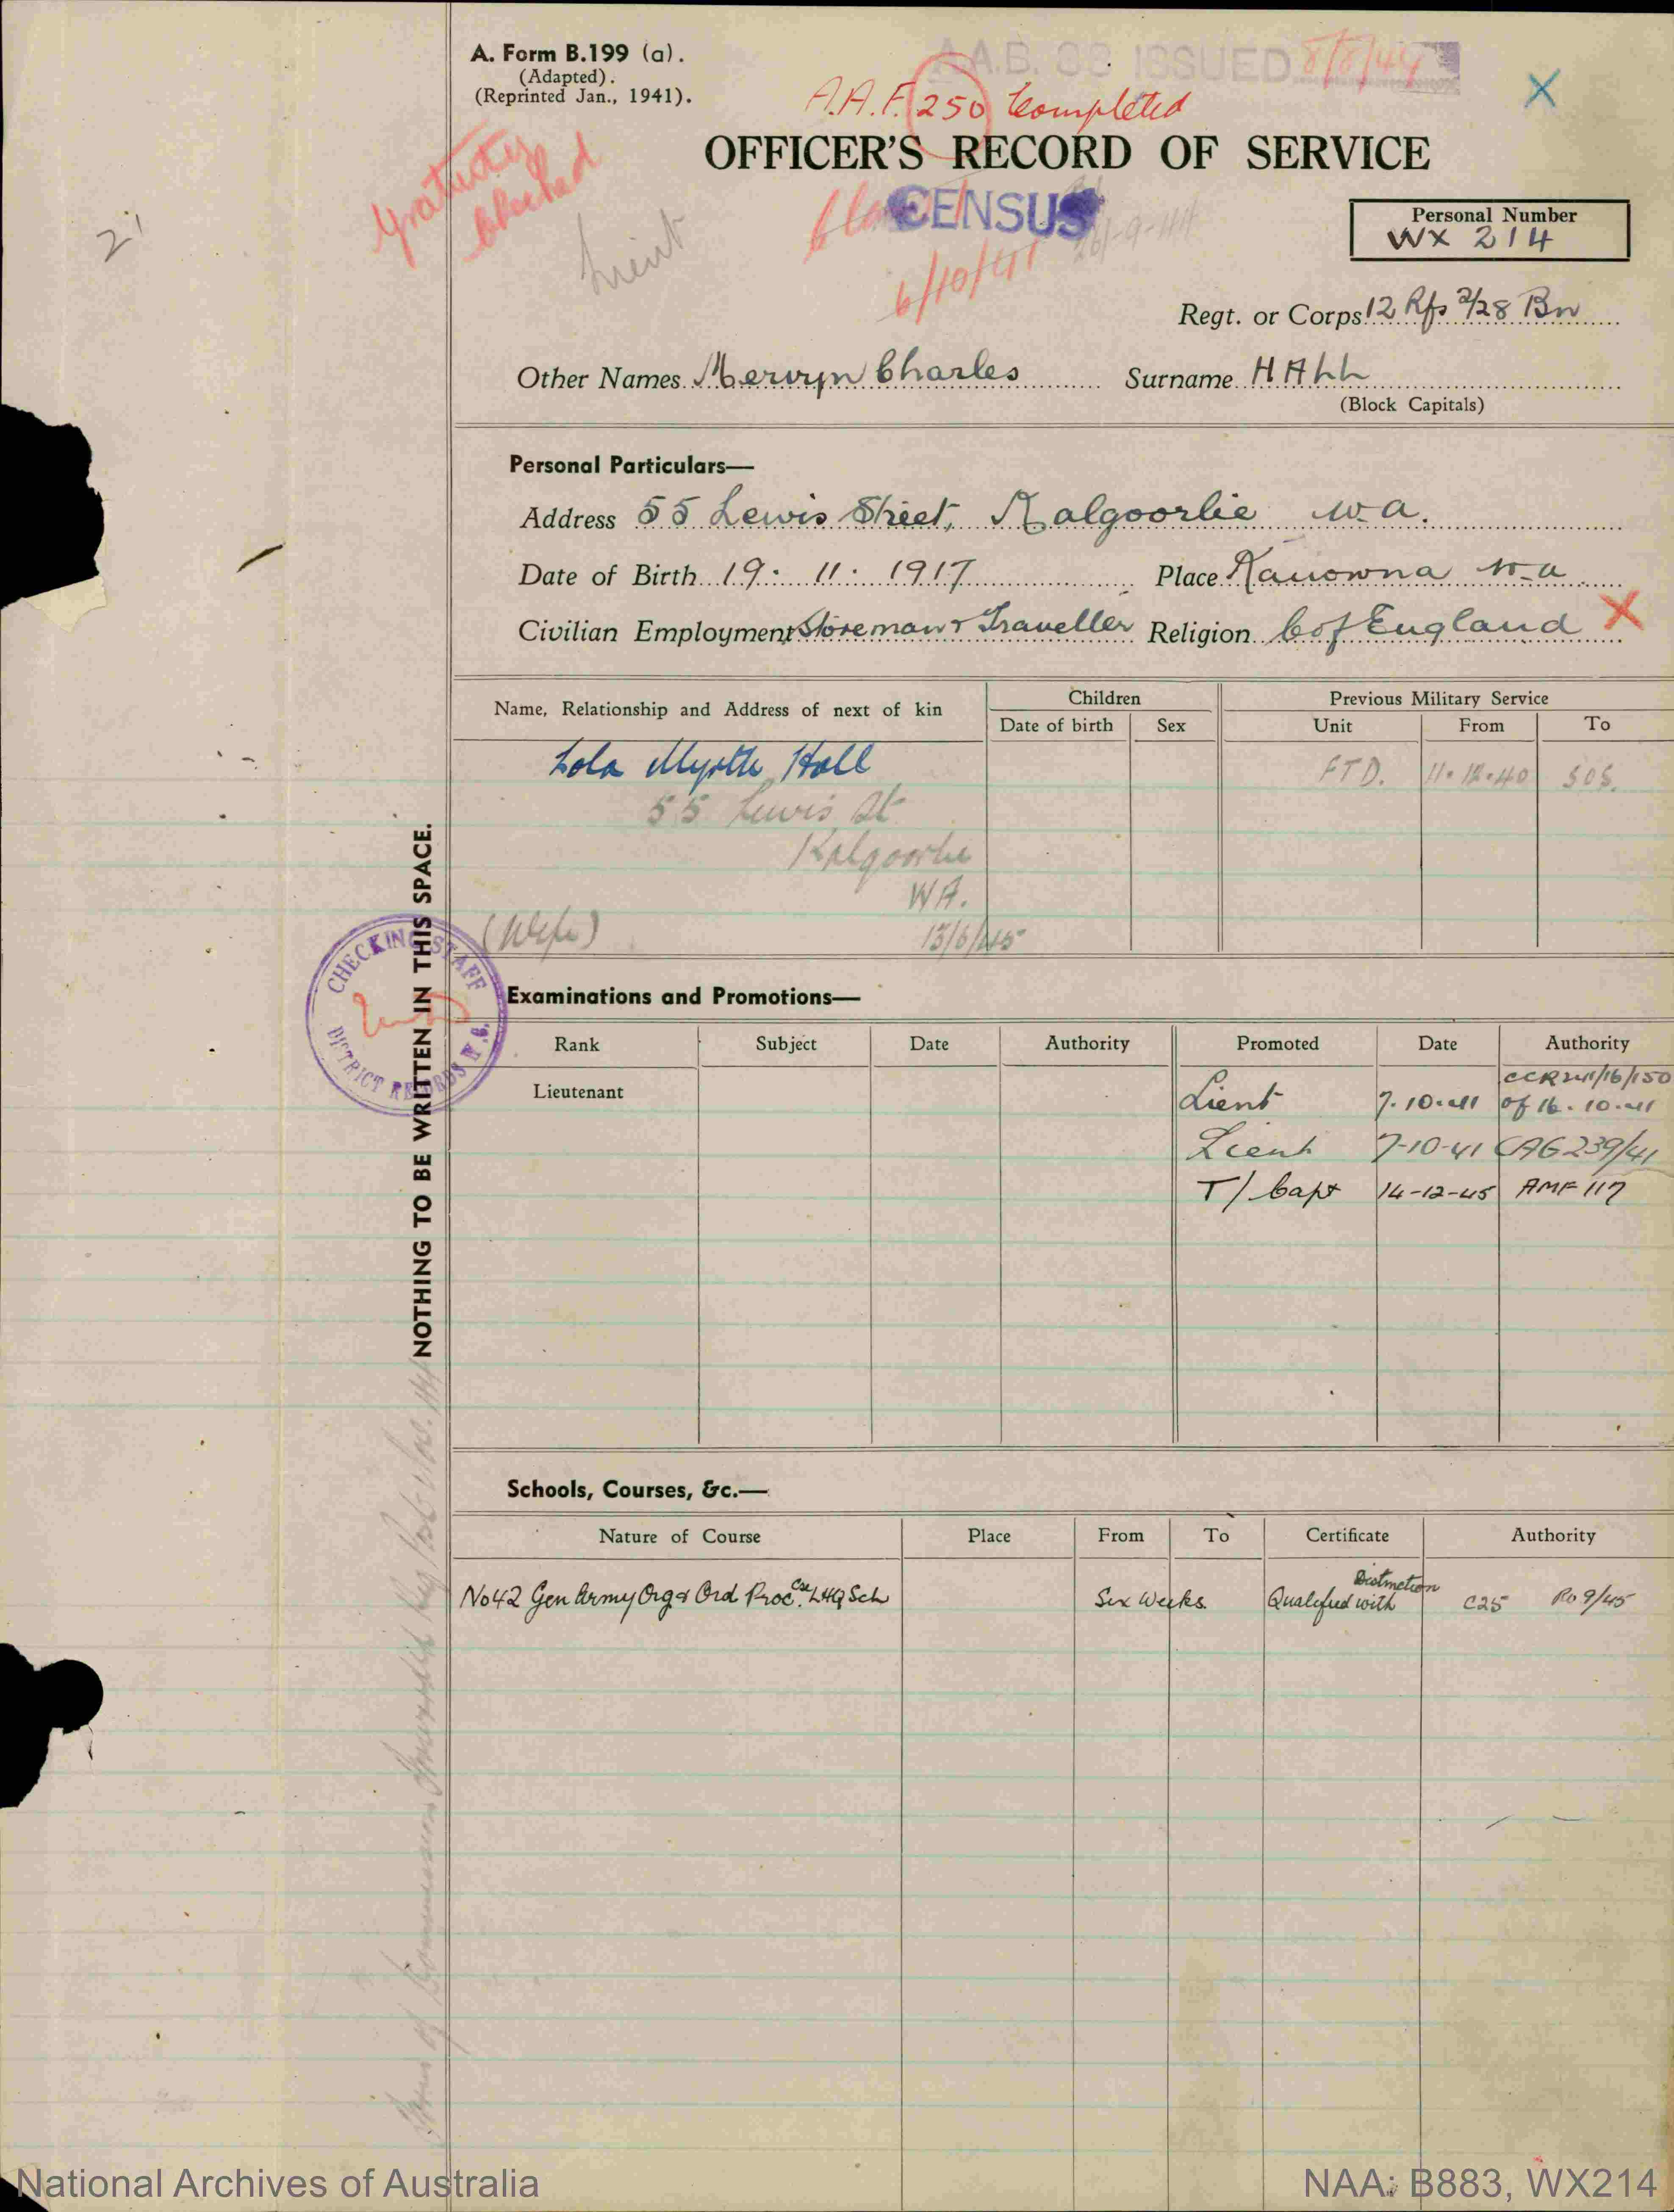 A. Form B.199 (a).
(Adapted).
(Reprinted Jan., 1941).
A.A.B. 83 ISSUED 8/8/44
A.A.F. 250 Completed
X
OFFICER'S RECORD OF SERVICE
Gratuity
Checked
Lieut
CENSUS
6/10/41
Personal Number
WX 214
Regt. or Corps 12 Rfs 2/28 Bn
Other Names Mervyn Charles Surname HALL
(Block Capitals)
Personal Particulars—
Address 55 Lewis Street, Kalgoorlie W.A.
Date of Birth 19. 11. 1917 Place Kanowna W.A
Civilian Employment Storeman & Traveller Religion C of England X
Name, Relationship and Address of next of kin Children Previous Military Service
Date of birth Sex Unit From To
Lola Myrtle Hall FTD. 11.12.40 SOS.
55 Lewis St
Kalgoorlie
WA.
(Wife) 13/6/45
NOTHING TO BE WRITTEN IN THIS SPACE.
CHECKING STAFF
DISTRICT RECORDS
Examinations and Promotions—
Rank Subject Date Authority Promoted Date Authority
Lieutenant Lieut 7.10.41 CCR 241/16/150 of 16.10.41
Lieut 7-10-41 CAG 239/41
T/ Capt 14-12-45 AMF 117
Schools, Courses, &c.—
Nature of Course Place From To Certificate Authority
No 42 Gen Army Org & Ord Proc Cse LHQ Sch Six Weeks Qualified with Distinction C25 Ro 9/45
National Archives of Australia NAA: B883, WX214